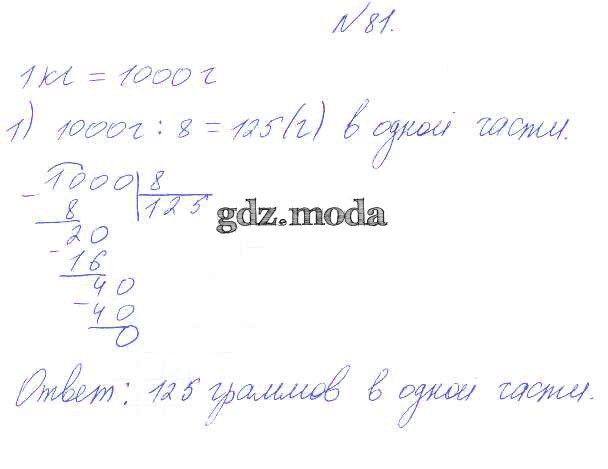 №81.
1 кг = 1000 г
1) 1000г : 8 = 125(г) в одной части.
- 1000 8
8 125
20
- 16
40
- 40
0
gdz.moda
Ответ: 125 граммов в одной части.